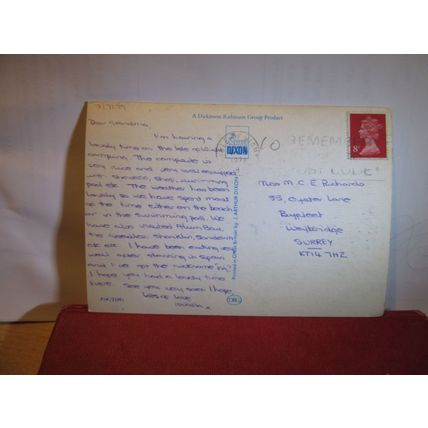 A Dickinson Robinson Group Product
Dear Grandma,
I'm having a
lovely time on the Isle of Wight
camping. The campsite is
very nice and very well equipped
with showers, shop, swimming
pool etc. The weather has been
lovely so we have spent most
of the time either on the beach
or in the swimming pool. We
have also visited Alum Bay,
the needles, Shanklin, Sandown
etc etc. I have been eating very
well after starving in Spain
and I've got the nickname
I hope you had a lovely time
here. See you very soon I hope.
Lots of love
Printed in Great Britain by J. ARTHUR DIXON
DIXON
1977
REMEMBER
8P
Mrs M.C.E Richards
35, Oyster Lane
Byfleet
Weybridge
SURREY
KT14 7HZ
DRG